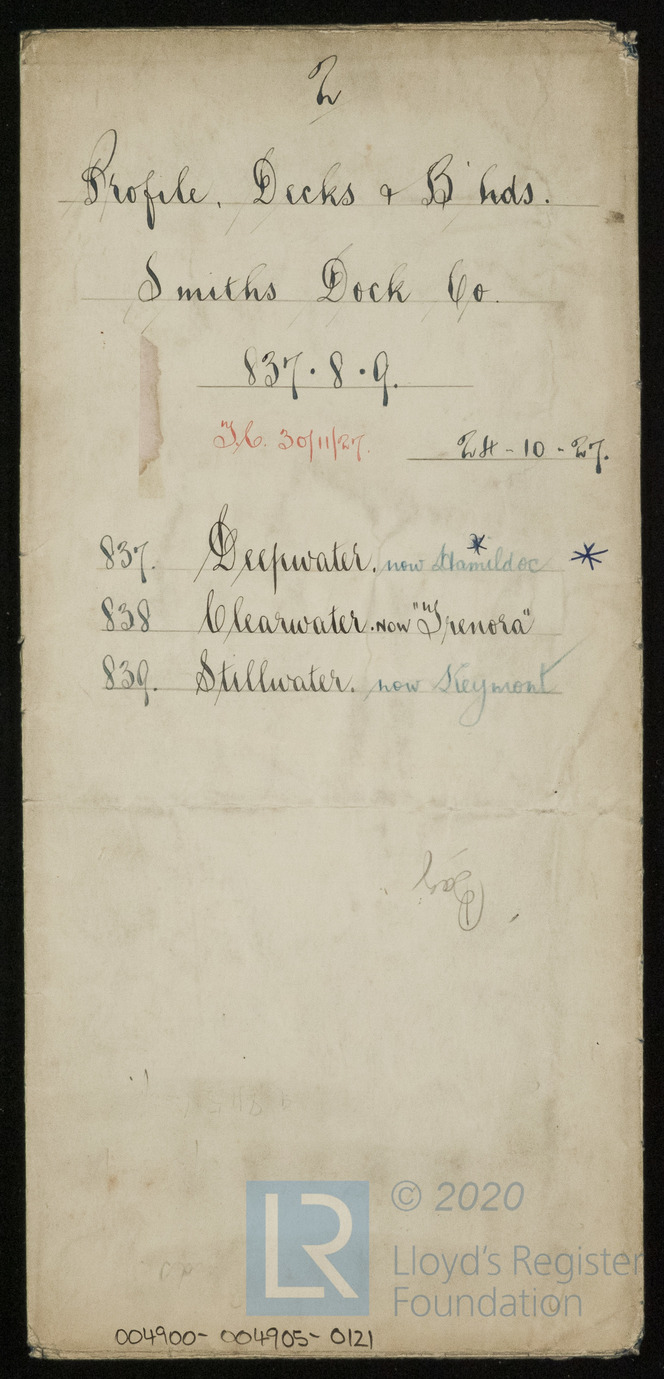 2
Profile, Decks & B'hds.
Smiths Dock Co.
837·8·9.
30/11/27.
24-10-27.
837. Deepwater. now Hamildoc * *
838 Clearwater. now "Trenora"
839. Stillwater. now Keymont
LR
© 2020
Lloyd's Register
Foundation
004900-004905-0121